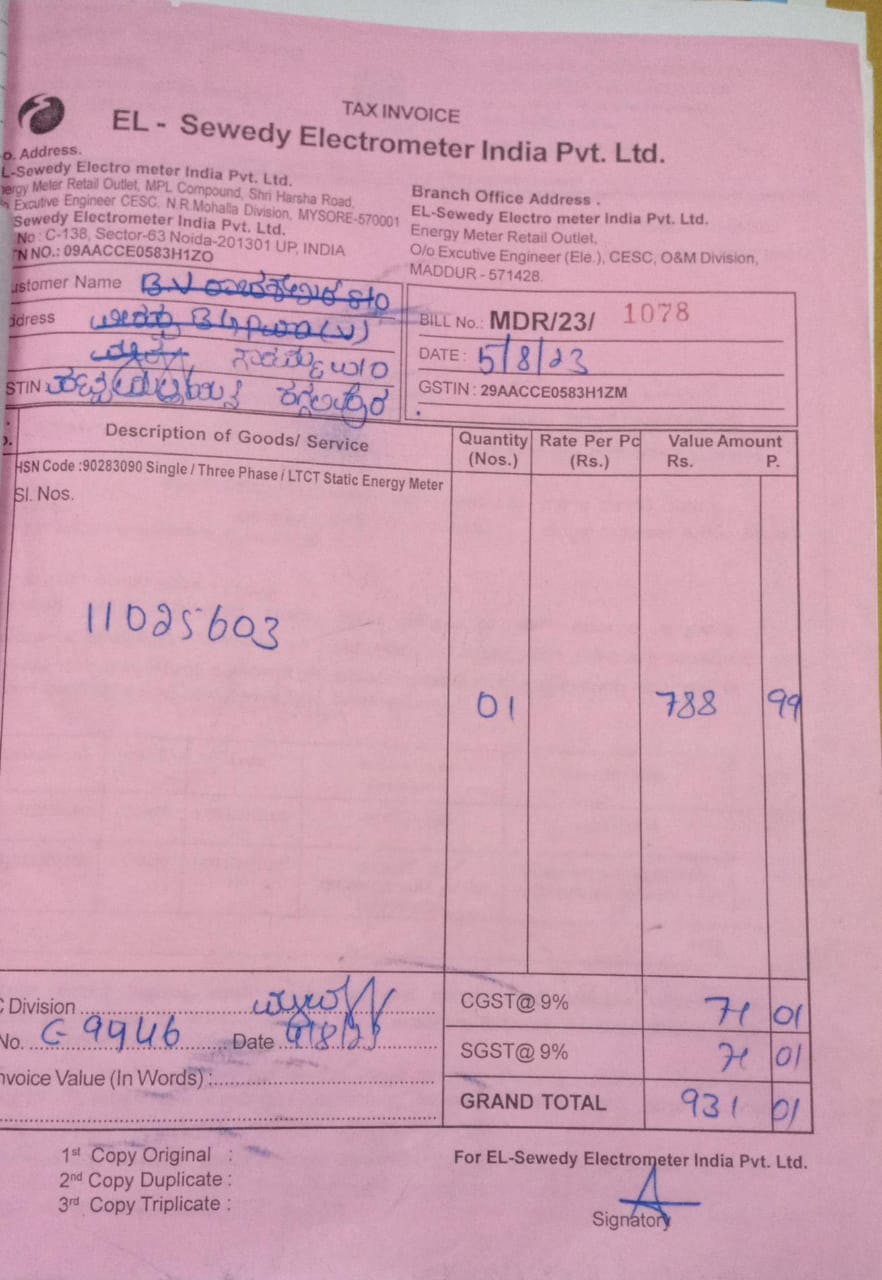 TAX INVOICE
EL - Sewedy Electrometer India Pvt. Ltd.
o. Address.
L-Sewedy Electro meter India Pvt. Ltd.
nergy Meter Retail Outlet, MPL Compound, Shri Harsha Road,
Excutive Engineer CESC. N.R.Mohalla Division, MYSORE-570001
Sewedy Electrometer India Pvt. Ltd.
No : C-138, Sector-63 Noida-201301 UP, INDIA
N NO.: 09AACCE0583H1ZO
Branch Office Address .
EL-Sewedy Electro meter India Pvt. Ltd.
Energy Meter Retail Outlet,
O/o Excutive Engineer (Ele.), CESC, O&M Division,
MADDUR - 571428.
ustomer Name B.V S/O
ddress
W/O
STIN
BILL No.: MDR/23/ 1078
DATE : 5/8/23
GSTIN : 29AACCE0583H1ZM
Description of Goods/ Service Quantity (Nos.) Rate Per Pc (Rs.) Value Amount Rs. P.
HSN Code :90283090 Single / Three Phase / LTCT Static Energy Meter
Sl. Nos.
11025603
01 788 99
C Division
No. G 9946 Date 9/8/23
nvoice Value (In Words) :
CGST@ 9% 71 01
SGST@ 9% 71 01
GRAND TOTAL 931 01
1st Copy Original :
2nd Copy Duplicate :
3rd Copy Triplicate :
For EL-Sewedy Electrometer India Pvt. Ltd.
Signatory